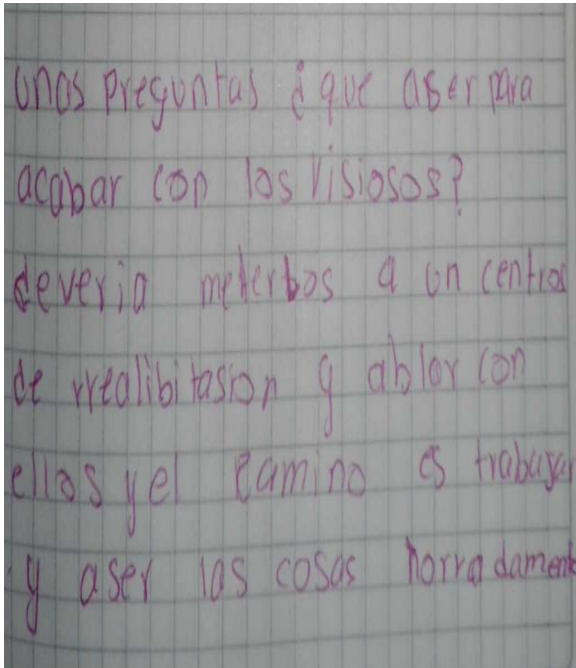 unas preguntas ¿que aser para
acabar con los visiosos?
deveria meterbos a un centros
de rrealibitasion y ablar con
ellos y el camino es trabayar
y aser las cosas horradamente